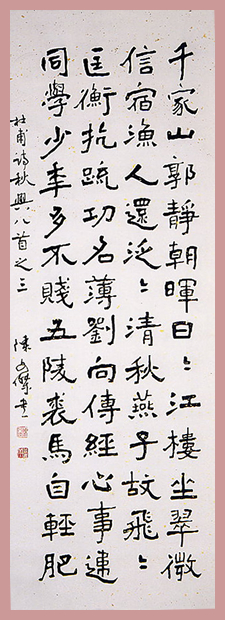 千家山郭靜朝暉日〻江樓坐翠微
信宿漁人還泛〻清秋燕子故飛〻
匡衡抗疏功名薄劉向傳經心事違
同學少年多不賤五陵裘馬自輕肥
杜甫詩秋興八首之三
陳文傑書